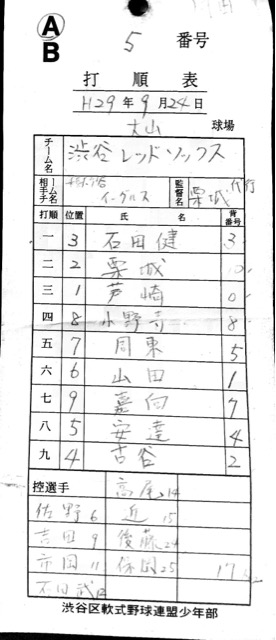 A
B
5 番号
打順表
H29年9月24日
大山 球場
チーム名 渋谷レッドソックス
相手チーム名 イーグルス 監督名 栗城 代行
打順 位置 氏名 背番号
一 3 石田健 3
二 2 栗城
三 1 芦崎 0
四 8 小野寺 8
五 7 周東 5
六 6 山田 1
七 9 嘉向 7
八 5 安達 4
九 4 古谷 2
控選手 高尾 14
佐野 6 近 15
吉田 9 後藤 24
市岡 11 保岡 25
石田武
渋谷区軟式野球連盟少年部